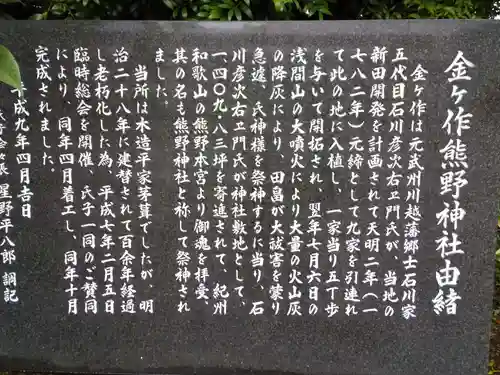 金ヶ作熊野神社由緒
金ヶ作は元武州川越藩郷士石川家
五代目石川彦次右ヱ門氏が、当地の
新田開発を計画されて天明二年（一
七八二年）元締として九家を引連れ
て此の地に入植し、一家当り五丁歩
を与いて開拓され、翌年七月六日の
浅間山の大噴火により大量の火山灰
の降灰により、田畠が大被害を蒙り
急遽、氏神様を祭神するに当り、石
川彦次右ヱ門氏が神社敷地として、
一四〇九・八三坪を寄進されて、紀州
和歌山の熊野本宮より御魂を拝受、
其の名も熊野神社と称して祭神され
ました。
当所は木造平家茅葺でしたが、明
治二十八年に建替されて百余年経過
し老朽化した為、平成七年二月五日
臨時総会を開催、氏子一同のご賛同
により、同年四月着工し、同年十月
完成されました。
平成九年四月吉日
星野平八郎 調記